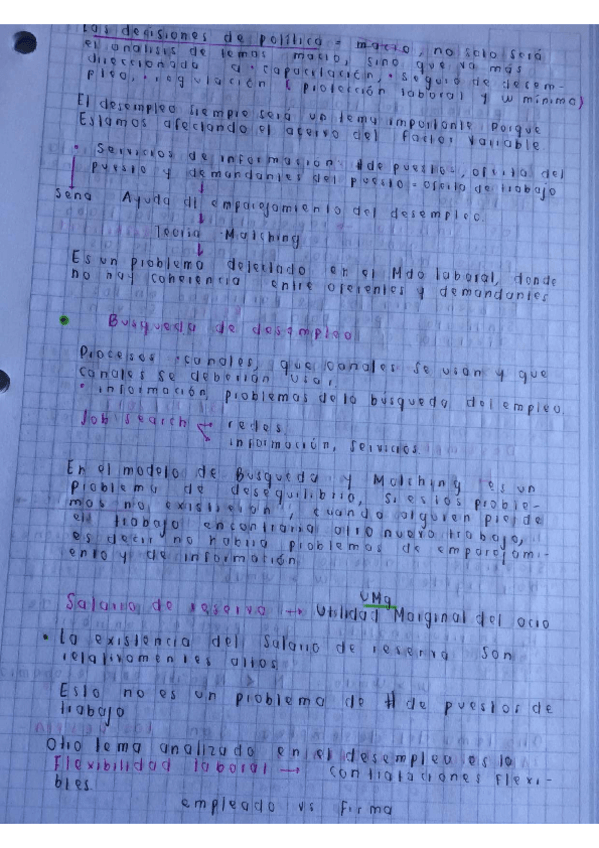 Las decisiones de política = macro, no solo será
el análisis de temas macro, sino que va más
direccionada a · capacitación, · seguro de desem-
pleo, · regulación (protección laboral y w mínimo)
El desempleo siempre será un tema importante porque
Estamos afectando el acervo del factor variable
• Servicios de informasion: #de puesto =, oferta del
puesto y demandantes del puesto = oferta de trabajo
Sena Ayuda al emparejamiento del desempleo
teoria Matching
Es un problema detectado en el Mdo laboral, donde
no hay coherencia entre oferentes y demandantes
• Busqueda de desempleo
Procesos · canales, que canales se usan y que
canales se deberian usar
• información, problemas de la búsqueda del empleo
Job search → redes
información, servicios
En el modelo de Busqueda y Matching es un
problema de desequilibrio, si estos proble-
mas no existieran, cuando alguien pierde
el trabajo encontraria otro nuevo trabajo,
es decir no habria problemas de emparejami-
ento y de información
UMg
Salario de reserva → Utilidad Marginal del ocio
• La existencia del salario de reserva son
relativamentes altos
Esto no es un problema de # de puestos de
trabajo
Otro tema analizado en el desempleo es la
Flexibilidad laboral → contrataciones flexi-
bles
empleado vs firma